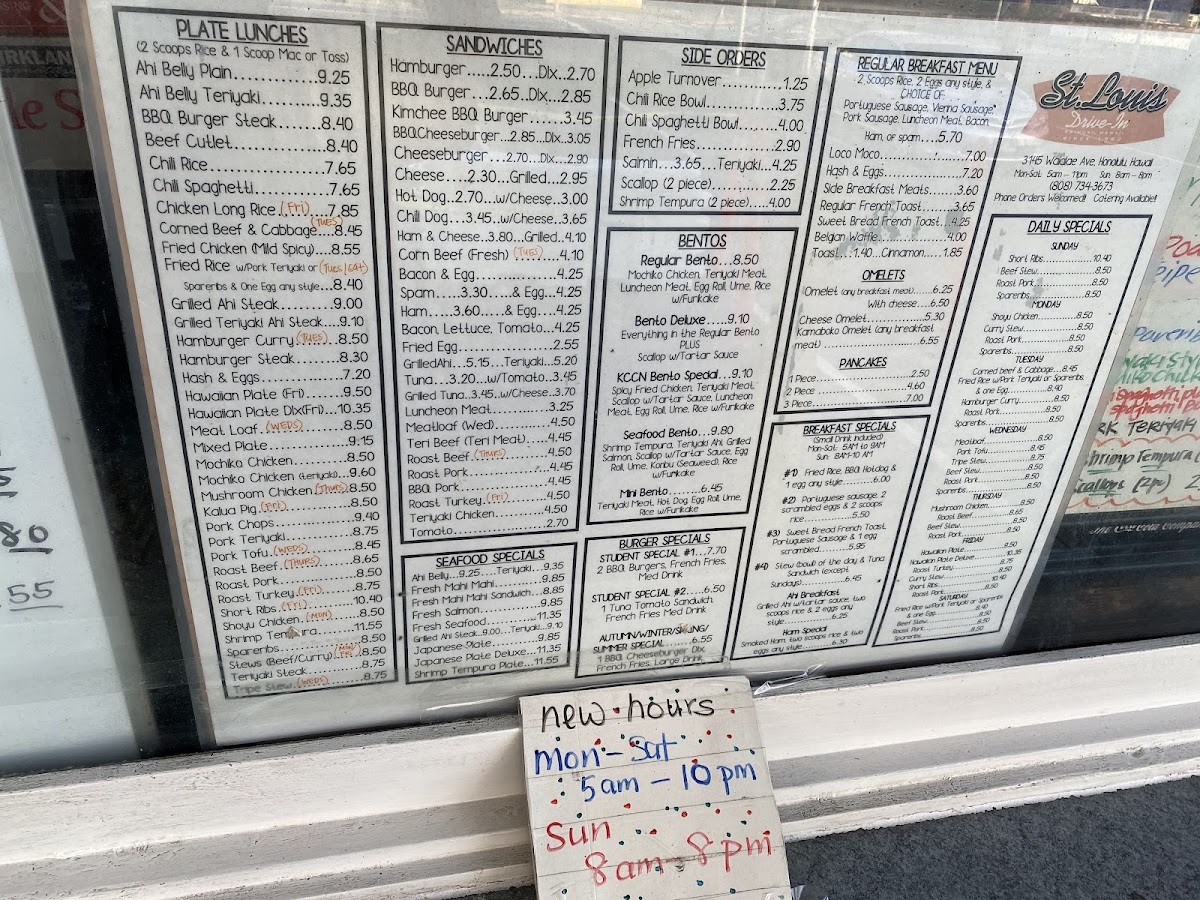 PLATE LUNCHES
(2 Scoops Rice & 1 Scoop Mac or Toss)
Ahi Belly Plain..........9.25
Ahi Belly Teriyaki..........9.35
BBQ Burger Steak.......8.40
Beef Cutlet..................8.40
Chili Rice.....................7.65
Chili Spaghetti.............7.65
Chicken Long Rice.(Fri)..7.85
Corned Beef & Cabbage...8.45 (TUES)
Fried Chicken (Mild Spicy)....8.55
Fried Rice w/Pork Teriyaki or (TUES/SAT)
Spareribs & One Egg any style....8.40
Grilled Ahi Steak...........9.00
Grilled Teriyaki Ahi Steak....9.10
Hamburger Curry.(TUES)..8.50
Hamburger Steak...........8.30
Hash & Eggs................7.20
Hawaiian Plate (Fri).......9.50
Hawaiian Plate Dlx(Fri)...10.35
Meat Loaf.(WEDS).......8.50
Mixed Plate................9.15
Mochiko Chicken...........8.50
Mochiko Chicken (teriyaki)...9.60
Mushroom Chicken(THURS).8.50
Kalua Pig.(Fri)............8.50
Pork Chops.................9.40
Pork Teriyaki..............8.75
Pork Tofu.(WEDS).........8.45
Roast Beef.(THURS).......8.65
Roast Pork.................8.50
Roast Turkey.(FRI)........8.75
Short Ribs.(FRI)..........10.40
Shoyu Chicken.(MON)......8.50
Shrimp Tempura...........11.55
Spareribs..................8.50
Stews (Beef/Curry).......8.50
Teriyaki Steak.............8.75
Tripe Stew.(WEDS)........8.75
SANDWICHES
Hamburger.....2.50...Dlx..2.70
BBQ Burger...2.65..Dlx..2.85
Kimchee BBQ Burger......3.45
BBQCheeseburger..2.85..Dlx.3.05
Cheeseburger...2.70...Dlx..2.90
Cheese....2.30...Grilled..2.95
Hot Dog..2.70..w/Cheese..3.00
Chili Dog...3.45..w/Cheese..3.65
Ham & Cheese..3.80..Grilled..4.10
Corn Beef (Fresh) (TUES)...4.10
Bacon & Egg...............4.25
Spam.....3.30.....& Egg...4.25
Ham.....3.60.....& Egg...4.25
Bacon, Lettuce, Tomato...4.25
Fried Egg..................2.55
GrilledAhi...5.15..Teriyaki...5.20
Tuna...3.20...w/Tomato..3.45
Grilled Tuna..3.45..w/Cheese..3.70
Luncheon Meat.............3.25
Meatloaf (Wed)............4.50
Teri Beef (Teri Meat).....4.45
Roast Beef.(THURS).......4.50
Roast Pork.................4.45
BBQ Pork..................4.45
Roast Turkey.(FRI)........4.50
Teriyaki Chicken...........4.50
Tomato....................2.70
SEAFOOD SPECIALS
Ahi Belly...9.25....Teriyaki...9.35
Fresh Mahi Mahi............9.85
Fresh Mahi Mahi Sandwich...8.85
Fresh Salmon...............9.85
Fresh Seafood.............11.35
Grilled Ahi Steak..9.00....Teriyaki..9.10
Japanese Plate.............9.85
Japanese Plate Deluxe....11.35
Shrimp Tempura Plate...11.55
SIDE ORDERS
Apple Turnover............1.25
Chili Rice Bowl............3.75
Chili Spaghetti Bowl.......4.00
French Fries...............2.90
Saimin...3.65...Teriyaki..4.25
Scallop (2 piece)..........2.25
Shrimp Tempura (2 piece)...4.00
BENTOS
Regular Bento...8.50
Mochiko Chicken, Teriyaki Meat,
Luncheon Meat, Egg Roll, Ume, Rice
w/Furikake
Bento Deluxe.....9.10
Everything in the Regular Bento
PLUS
Scallop w/Tartar Sauce
KCCN Bento Special...9.10
Spicy Fried Chicken, Teriyaki Meat,
Scallop w/Tartar Sauce, Luncheon
Meat, Egg Roll, Ume, Rice w/Furikake
Seafood Bento...9.80
Shrimp Tempura, Teriyaki Ahi, Grilled
Salmon, Scallop w/Tartar Sauce, Egg
Roll, Ume, Konbu (Seaweed), Rice
w/Furikake
Mini Bento.......6.45
Teriyaki Meat, Hot Dog, Egg Roll, Ume,
Rice w/Furikake
BURGER SPECIALS
STUDENT SPECIAL #1...7.70
2 BBQ Burgers, French Fries,
Med Drink
STUDENT SPECIAL #2.....6.50
1 Tuna Tomato Sandwich,
French Fries Med Drink
AUTUMN/WINTER/SPRING/
SUMMER SPECIAL........6.55
1 BBQ Cheeseburger Dlx
French Fries, Large Drink
REGULAR BREAKFAST MENU
2 Scoops Rice, 2 Eggs any style, &
CHOICE OF:
Portuguese Sausage, Vienna Sausage,
Pork Sausage, Luncheon Meat, Bacon,
Ham, or spam.....5.70
Loco Moco.................7.00
Hash & Eggs...............7.20
Side Breakfast Meats......3.60
Regular French Toast......3.65
Sweet Bread French Toast..4.25
Belgan Waffle.............4.00
Toast....1.40...Cinnamon..1.85
OMELETS
Omelet (any breakfast meat).......6.25
With cheese....6.50
Cheese Omelet..............5.30
Kamaboko Omelet (any breakfast
meat)......................6.55
PANCAKES
1 Piece....................2.50
2 Piece....................4.60
3 Piece....................7.00
BREAKFAST SPECIALS
(Small Drink Included)
Mon-Sat: 5AM to 9AM
Sun: 8AM-10 AM
#1) Fried Rice, BBQ Hotdog &
1 egg any style.........6.00
#2) Portuguese sausage, 2
scrambled eggs & 2 scoops
rice...............5.50
#3) Sweet Bread French Toast,
Portuguese Sausage & 1 egg
scrambled.........5.95
#4) Stew bowl of the day & Tuna
Sandwich (except
Sundays)............6.45
Ahi Breakfast
Grilled Ahi w/tartar sauce, two
scoops rice & 2 eggs any
style................6.25
Ham Special
Smoked Ham, two scoops rice & two
eggs any style.............6.30
St. Louis
Drive-In
3145 Waialae Ave, Honolulu, Hawaii
Mon-Sat: 5am - 11pm Sun: 8am - 8pm
(808) 734-3673
Phone Orders Welcomed! Catering Available!
DAILY SPECIALS
SUNDAY
Short Ribs..............10.40
Beef Stew...............8.50
Roast Pork..............8.50
Spareribs...............8.50
MONDAY
Shoyu Chicken...........8.50
Curry Stew..............8.50
Roast Pork..............8.50
Spareribs...............8.50
TUESDAY
Corned beef & Cabbage...8.45
Fried Rice w/Pork Teriyaki or Spareribs,
& one Egg...............8.40
Hamburger Curry.........8.50
Roast Pork..............8.50
Spareribs...............8.50
WEDNESDAY
Meatloaf................8.50
Pork Tofu...............8.45
Tripe Stew..............8.75
Beef Stew...............8.50
Roast Pork..............8.50
Spareribs...............8.50
THURSDAY
Mushroom Chicken........8.50
Roast Beef..............8.65
Beef Stew...............8.50
Roast Pork..............8.50
FRIDAY
Hawaiian Plate..........9.50
Hawaiian Plate Deluxe...10.35
Roast Turkey............8.75
Curry Stew..............8.50
Short Ribs..............10.40
Roast Pork..............8.50
Spareribs...............8.50
SATURDAY
Fried Rice w/Pork Teriyaki or Spareribs
& one Egg...............8.40
Beef Stew...............8.50
Roast Pork..............8.50
Spareribs...............8.50
new hours
mon - Sat
5am - 10pm
Sun
8am - 8pm
80
55
Shrimp Tempura
Scallops (2pc)